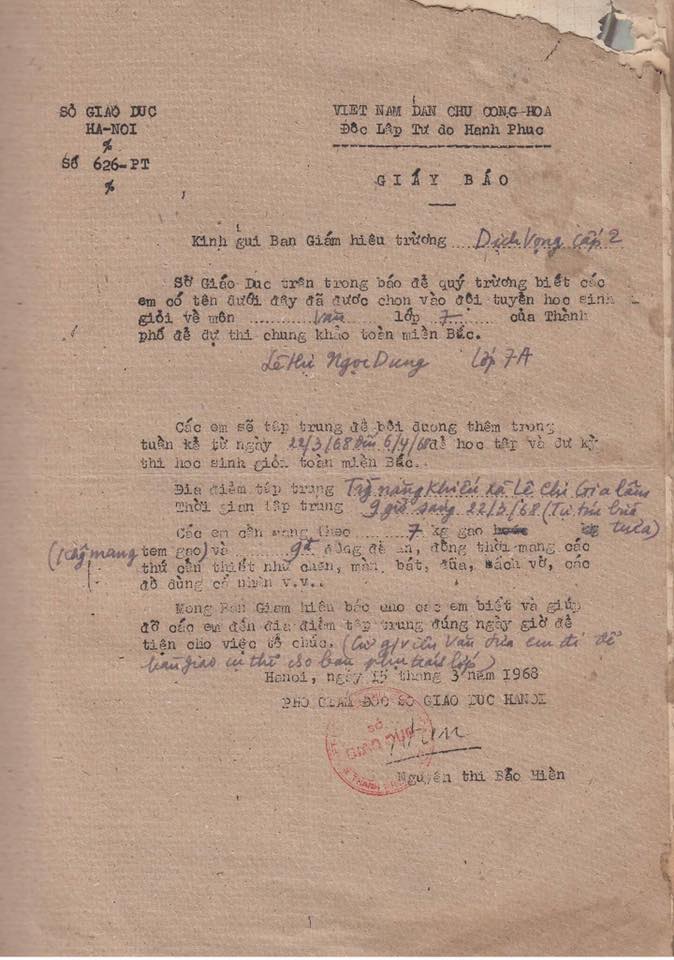 SỞ GIAO DUC
HA-NOI
%
Số 626-PT
%
VIET NAM DAN CHU CONG HOA
Đôc Lâp Tư do Hanh Phuc
GIẤY BÁO
Kinh gui Ban Giám hiêu trương Dịch Vọng cấp 2
Sở Giáo Duc trân trong báo để quý trương biết các
em có tên dưới đây đã đươc chon vào đôi tuyển hoc sinh
giỏi về môn Văn lớp 7 của Thành
phố để dự thi chung khảo toàn miền Bắc.
Lê thị Ngọc Dung Lớp 7A
Các em sẽ tâp trung để bồi dương thêm trong
tuần kể từ ngày 22/3/68 đến 6/4/68 để hoc tâp và dư kỳ
thi hoc sinh giỏi toàn miền Bắc.
Đia điểm tâp trung Trg năng khiếu xã Lê Chi Gia Lâm
Thời gian tâp trung 9 giờ sáng 22/3/68 (Từ tối
Các em cần mang theo 7 kg gao kg
(Không mang tem gao) và 9đ đồng để ăn, đồng thời mang các
thứ cần thiết như chăn, màn, bát, đũa, sách vở, các
đồ dùng cá nhân v.v..
Mong Ban Giam hiêu báo cho các em biết và giúp
đỡ các em đến đia điểm tâp trung đúng ngày giờ để
tiên cho viêc tổ chức. (Cử g/viên Văn đưa em đi để
bàn giao cụ thể cho ban phụ trách lớp)
Hanoi, ngày 15 thang 3 năm 1968
PHO GIAM ĐỐC SỞ GIAO DUC HANOI
SỞ
GIÁO DỤC
Nguyễn thi Bảo Hiền